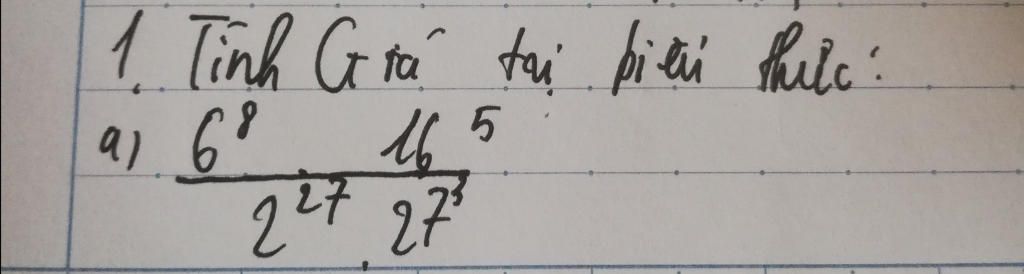 1. Tính Giá tại biểu thức:
a) 6^8 . 16^5
2^27 . 27^3